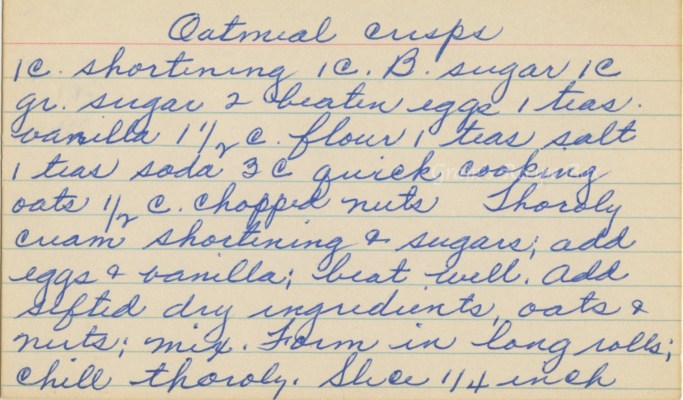 Oatmeal crisps
1C. shortening 1C. B. sugar 1C
gr. sugar 2 beaten eggs 1 teas.
vanilla 1 1/2 c. flour 1 teas salt
1 teas soda 3 C quick cooking
oats 1/2 c. chopped nuts Thoroly
cream shortening & sugars; add
eggs & vanilla; beat well. Add
sifted dry ingredients, oats &
nuts; mix. Form in long rolls;
chill thoroly. Slice 1/4 inch